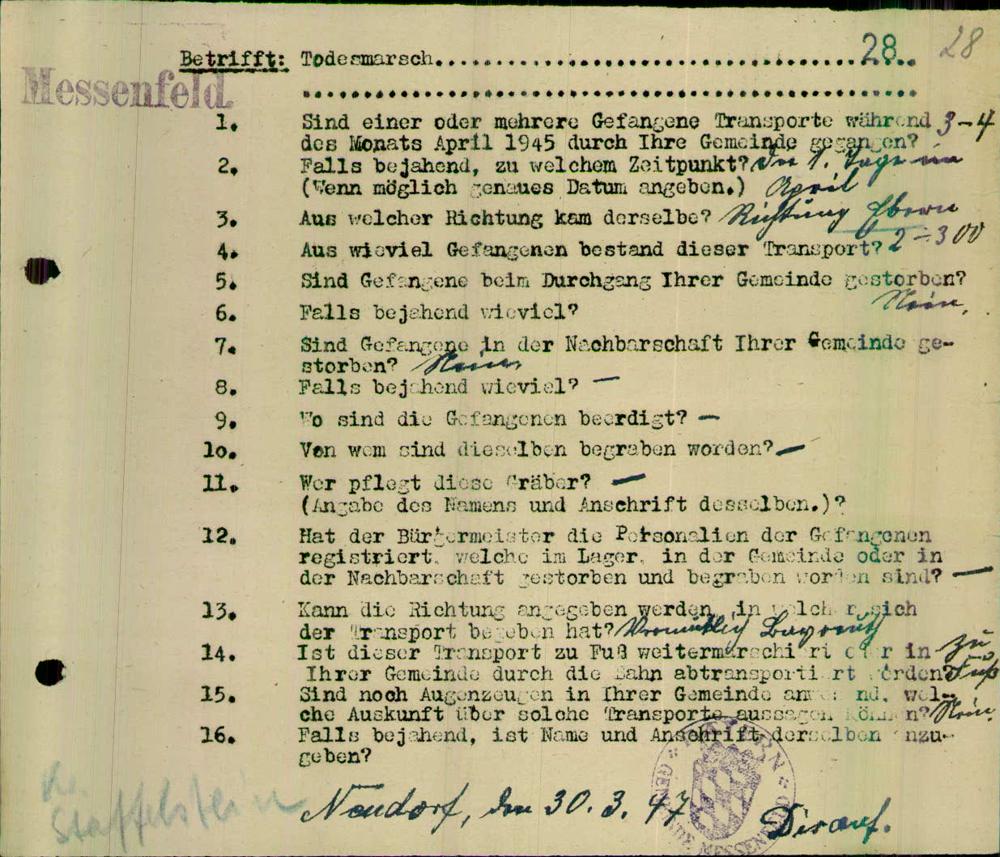 28 28
Betrifft: Todesmarsch........................................
Messenfeld.
........................................
1. Sind einer oder mehrere Gefangene Transporte während 3-4
des Monats April 1945 durch Ihre Gemeinde gegangen?
2. Falls bejahend, zu welchem Zeitpunkt? 1. Tage im
(Wenn möglich genaues Datum angeben.) April
3. Aus welcher Richtung kam derselbe? Richtung Ebern
4. Aus wieviel Gefangenen bestand dieser Transport? 2-300
5. Sind Gefangene beim Durchgang Ihrer Gemeinde gestorben?
Nein.
6. Falls bejahend wieviel?
7. Sind Gefangene in der Nachbarschaft Ihrer Gemeinde ge-
storben? Nein
8. Falls bejahend wieviel? —
9. Wo sind die Gefangenen beerdigt? —
10. Von wem sind dieselben begraben worden? —
11. Wer pflegt diese Gräber? —
(Angabe des Namens und Anschrift desselben.)?
12. Hat der Bürgermeister die Personalien der Gefangenen
registriert, welche im Lager, in der Gemeinde oder in
der Nachbarschaft gestorben und begraben worden sind? —
13. Kann die Richtung angegeben werden, in welcher sich
der Transport begeben hat? Vermutlich Bayreuth
14. Ist dieser Transport zu Fuß weitermarschiert oder in zu
Ihrer Gemeinde durch die Bahn abtransportiert worden? Fuß
15. Sind noch Augenzeugen in Ihrer Gemeinde anwesend, wel-
che Auskunft über solche Transporte aussagen können? Nein.
16. Falls bejahend, ist Name und Anschrift derselben anzu-
geben?
BAYERN GEMEINDE MESSENFELD
Neudorf, den 30.3.47 Dirauf.
Staffelstein